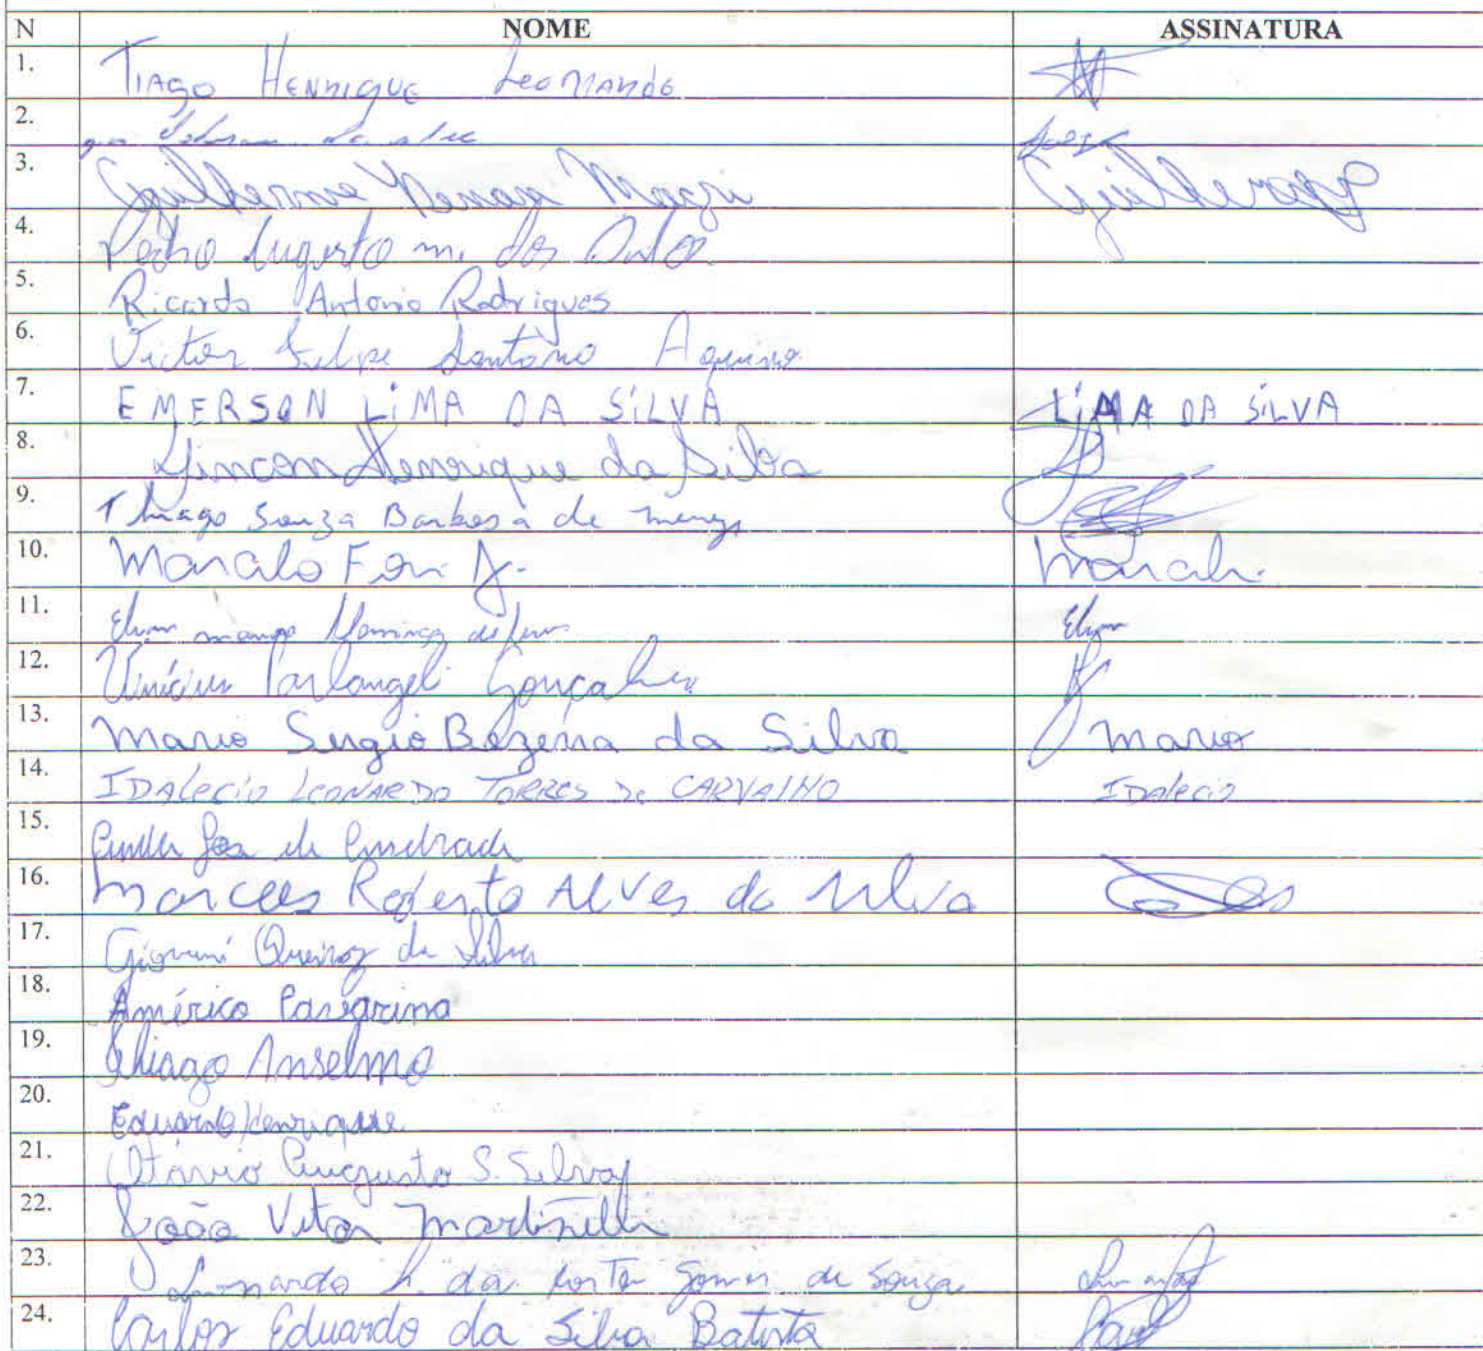 N NOME ASSINATURA
1. Tiago Hennique Leonando
2.
3. Guilherme Renan Guilherme
4. Pedro Augusto m. dos
5. Ricardo Antonio Rodrigues
6. Victor Felipe Santório Aquino
7. EMERSON LiMA DA SiLVA LiMA DA SiLVA
8. Lincon Henrique da Silva
9. Thiago Souza Barbosa de
10. Marcalo
11.
12. Vinícius Parlangeli Gonçalves
13. Mario Sergio Bezerra da Silva Mario
14. IDALECIO LEONARDO TORRES De CARVALHO IDALECIO
15. de Andrade
16. Marcos Roberto Alves da Silva
17. Giovani Queiroz da Silva
18. Américo Paregrina
19. Thiago Anselmo
20. Eduardo Henrique
21. Otávio Augusto S. Silva
22. João Vitor Martinelli
23. Leonardo H. da Gomes de Souza
24. Carlos Eduardo da Silva Batista